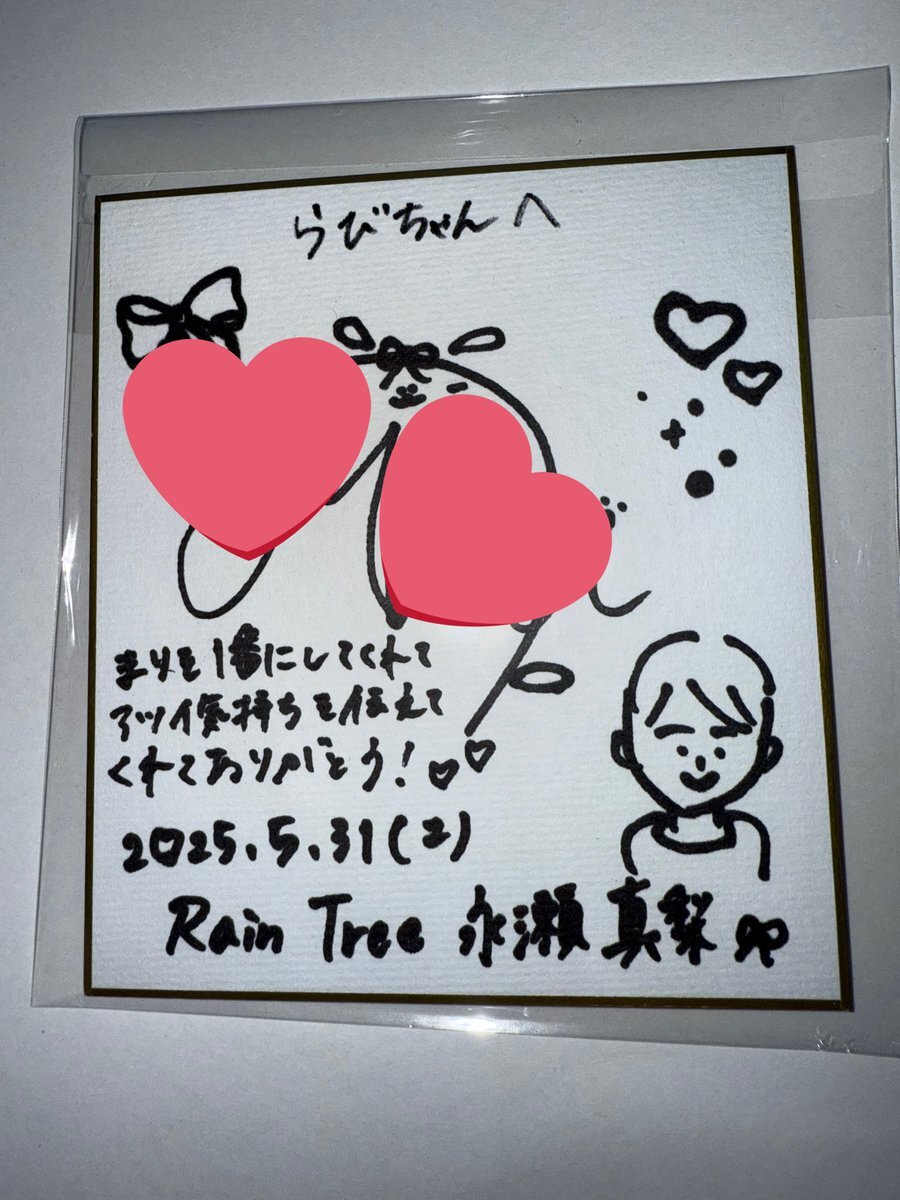 らびちゃんへ
まりを1番にしてくれて
アツイ気持ちを伝えて
くれてありがとう!
2025.5.31(2)
Rain Tree 永瀬真梨